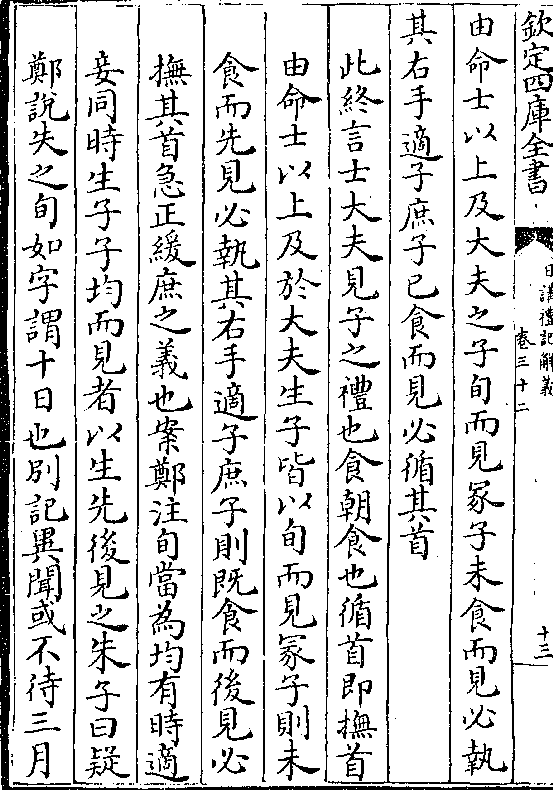 欽定四庫全書
日講禮記解義
卷三十二
十三
由命士以上及大夫之子旬而見冢子未食而見必執
其右手適子庶子已食而見必循其首
此終言士大夫見子之禮也食朝食也循首即撫首
由命士以上及於大夫生子皆以旬而見冢子則未
食而先見必執其右手適子庶子則既食而後見必
撫其首急正緩庶之義也案鄭注旬當為均有時適
妾同時生子子均而見者以生先後見之朱子曰疑
鄭說失之旬如字謂十日也別記異聞或不待三月